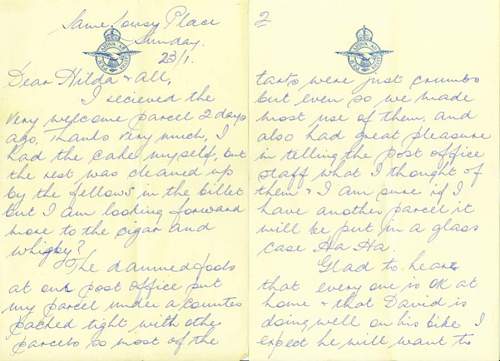 Same Lousy Place
Sunday.
23/1.
Dear Hilda & All,
I recieved the
very welcome parcel 2 days
ago, Thanks very much, I
had the cake myself, but
the rest was cleaned up
by the fellows in the billet
but I am looking forward
more to the cigar and
whisky?
The damned fools
at our post office put
my parcel under a counter
packed tight with other
parcels so most of the
2
tarts were just crumbs
but even so we made
most use of them, and
also had great pleasure
in telling the post office
staff what I thought of
them & I am sure if I
have another parcel it
will be put in a glass
case Ha Ha.
Glad to hear
that every one is OK at
home & that David is
doing well on his bike I
expect he will want to